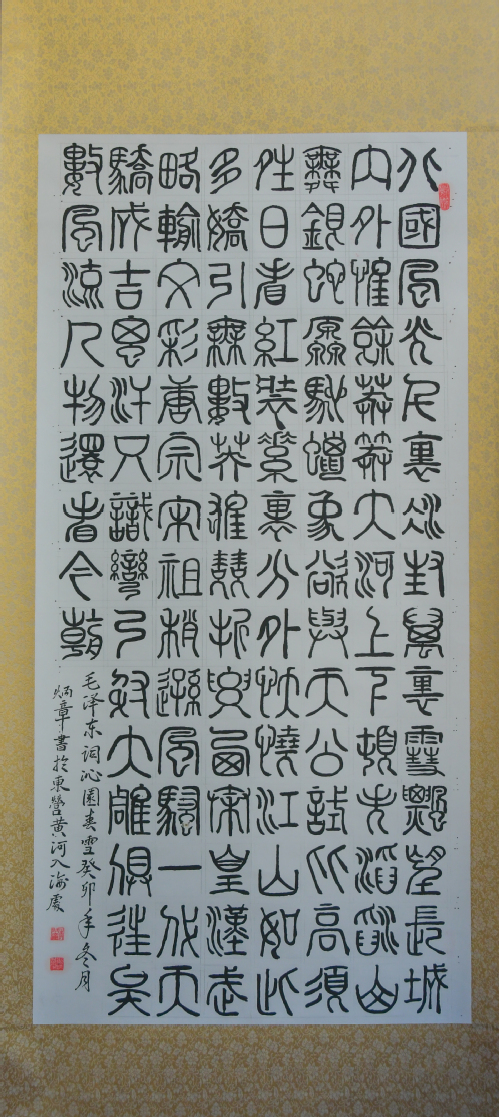 北國風光千里冰封萬里雪飄望長城
内外惟餘莽莽大河上下頓失滔滔山
舞銀蛇原馳蠟象欲與天公試比高須
晴日看紅裝素裹分外妖嬈江山如此
多嬌引無數英雄競折腰惜秦皇漢武
略輸文彩唐宗宋祖稍遜風騷一代天
驕成吉思汗只識彎弓射大雕俱往矣
數風流人物還看今朝
毛泽东词沁園春雪癸卯年冬月
炳章書於東營黄河入海處